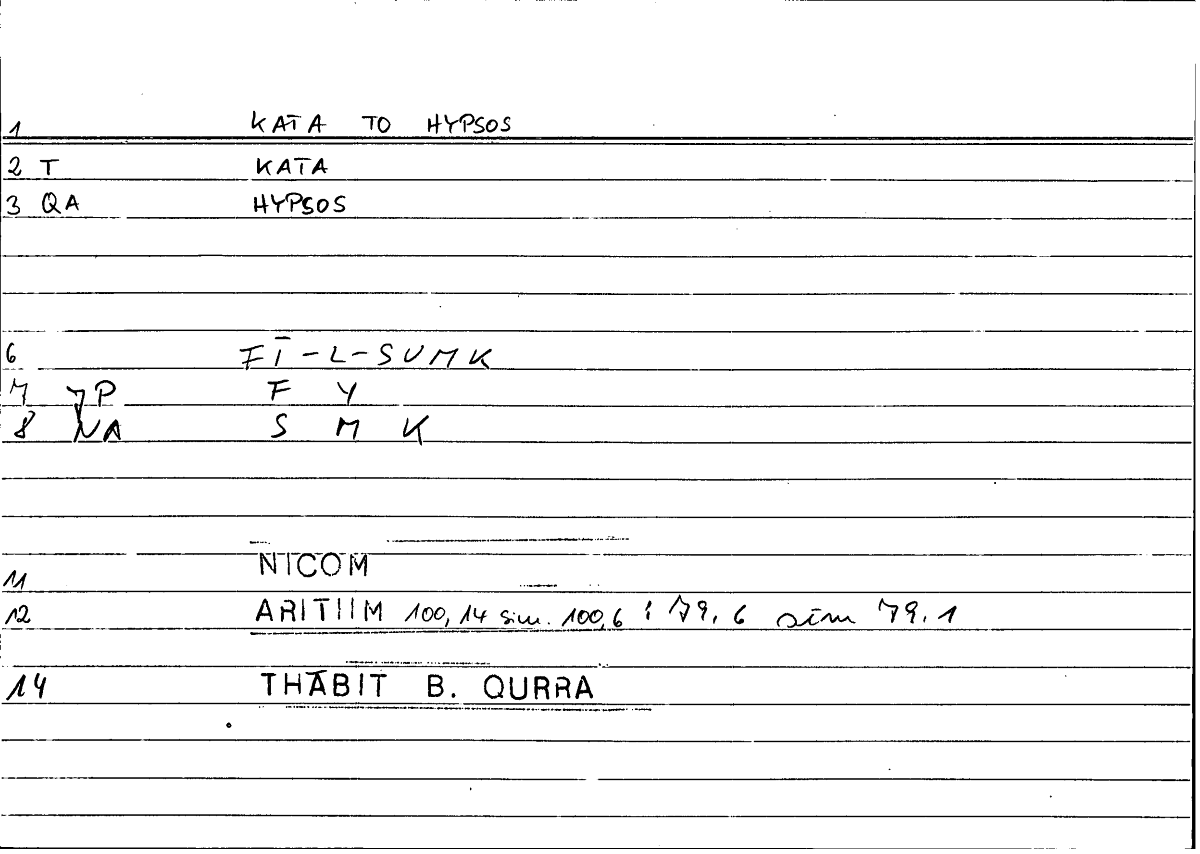 1 KATA TO HYPSOS
2 T KATA
3 QA HYPSOS
6 FĪ-L-SUMK
7 JP F Y
8 NA S M K
11 NICOM
12 ARITIIM 100,14 sim. 100,6 : 79.6 sim 79.1
14 THĀBIT B. QURRA